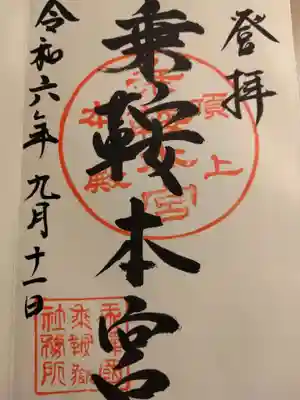 登拝
頂上
乗鞍本宮
本殿
令和六年九月十一日
乗鞍嶽
社務所